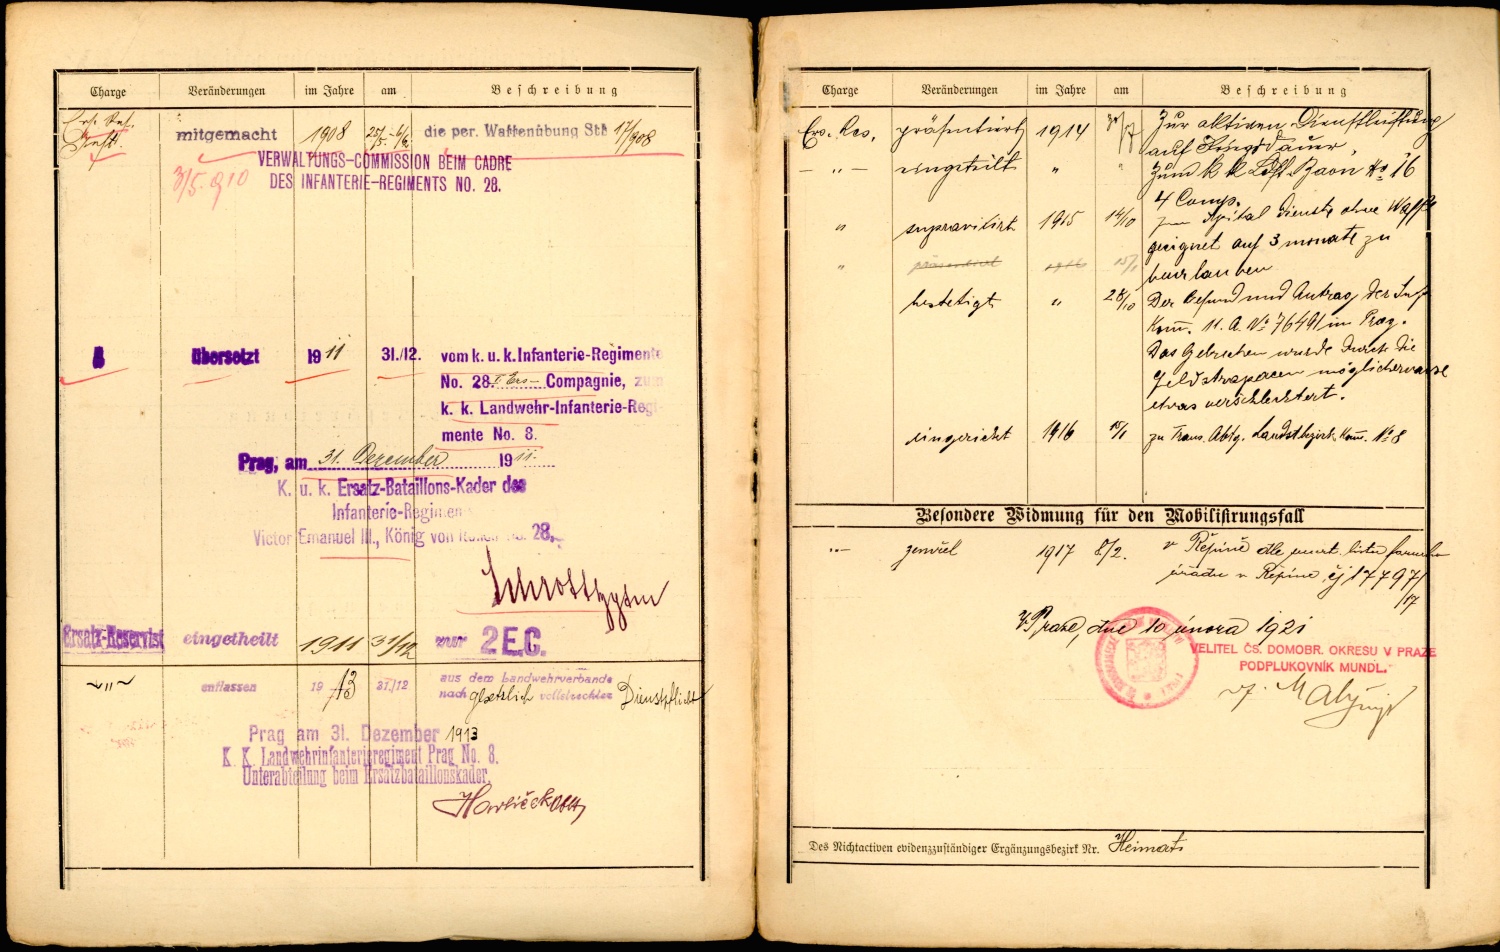 Charge Veränderungen im Jahre am Beschreibung
Ers. Res.
Inft. mitgemacht 1908 25/5.-6/6. die per. Waffenübung Stt 17/908
VERWALTUNGS-COMMISSION BEIM CADRE
DES INFANTERIE-REGIMENTS NO. 28.
3/5. 910
übersetzt 1911 31./12. vom k. u. k. Infanterie-Regimente
No. 28. Ers- Compagnie, zum
k. k. Landwehr-Infanterie-Regi-
mente No. 8.
Prag, am 31. Dezember 1911.
K. u. k. Ersatz-Bataillons-Kader des
Infanterie-Regimen
Victor Emanuel III., König von Italien No. 28.
Ersatz-Reservist eingetheilt 1911 31/12 zur 2 E.C.
-„- entlassen 1913 31./12 aus dem Landwehrverbande
nach gesetzlich vollstreckter Dienstpflicht
Prag am 31. Dezember 1913
K. K. Landwehrinfanterieregiment Prag No. 8.
Unterabteilung beim Ersatzbataillonskader.
Havlíček Oblt
Charge Veränderungen im Jahre am Beschreibung
Ers. Res. präsentirt 1914 Zur aktiven Dienstleistung
auf Kriegsdauer,
-„- eingeteilt " " Zum k k Ldst. Baon No 16
4 Comp.
" supravisirt 1915 14/10 zum Spital Dienste ohne Waffe
geeignet auf 3 monate zu
beurlauben
" präsentirt 1916 15/1
bestetigt " 28/10 Der Befund und Antrag der Sup
Kom. M. A. No 76491 in Prag.
Das Gebrechen wurde durch die
Feldstrapacen möglicherweise
etwas verschlechtert.
eingerückt 1916 15/1 zu Trans. Abtg. Landst. bezirk. Kom. No 8
Besondere Widmung für den Mobilisirungsfall
-„- zemřel 1917 8/2. v Řepíně dle úmrt. listu farního
úřadu v Řepíně čj 17797/
/17
V Praze, dne 10 února 1921
VELITEL ČS. DOMOBR. OKRESU V PRAZE
PODPLUKOVNÍK MUNDL.
Des Nichtactiven evidenzzuständiger Ergänzungsbezirk Nr. Heimats